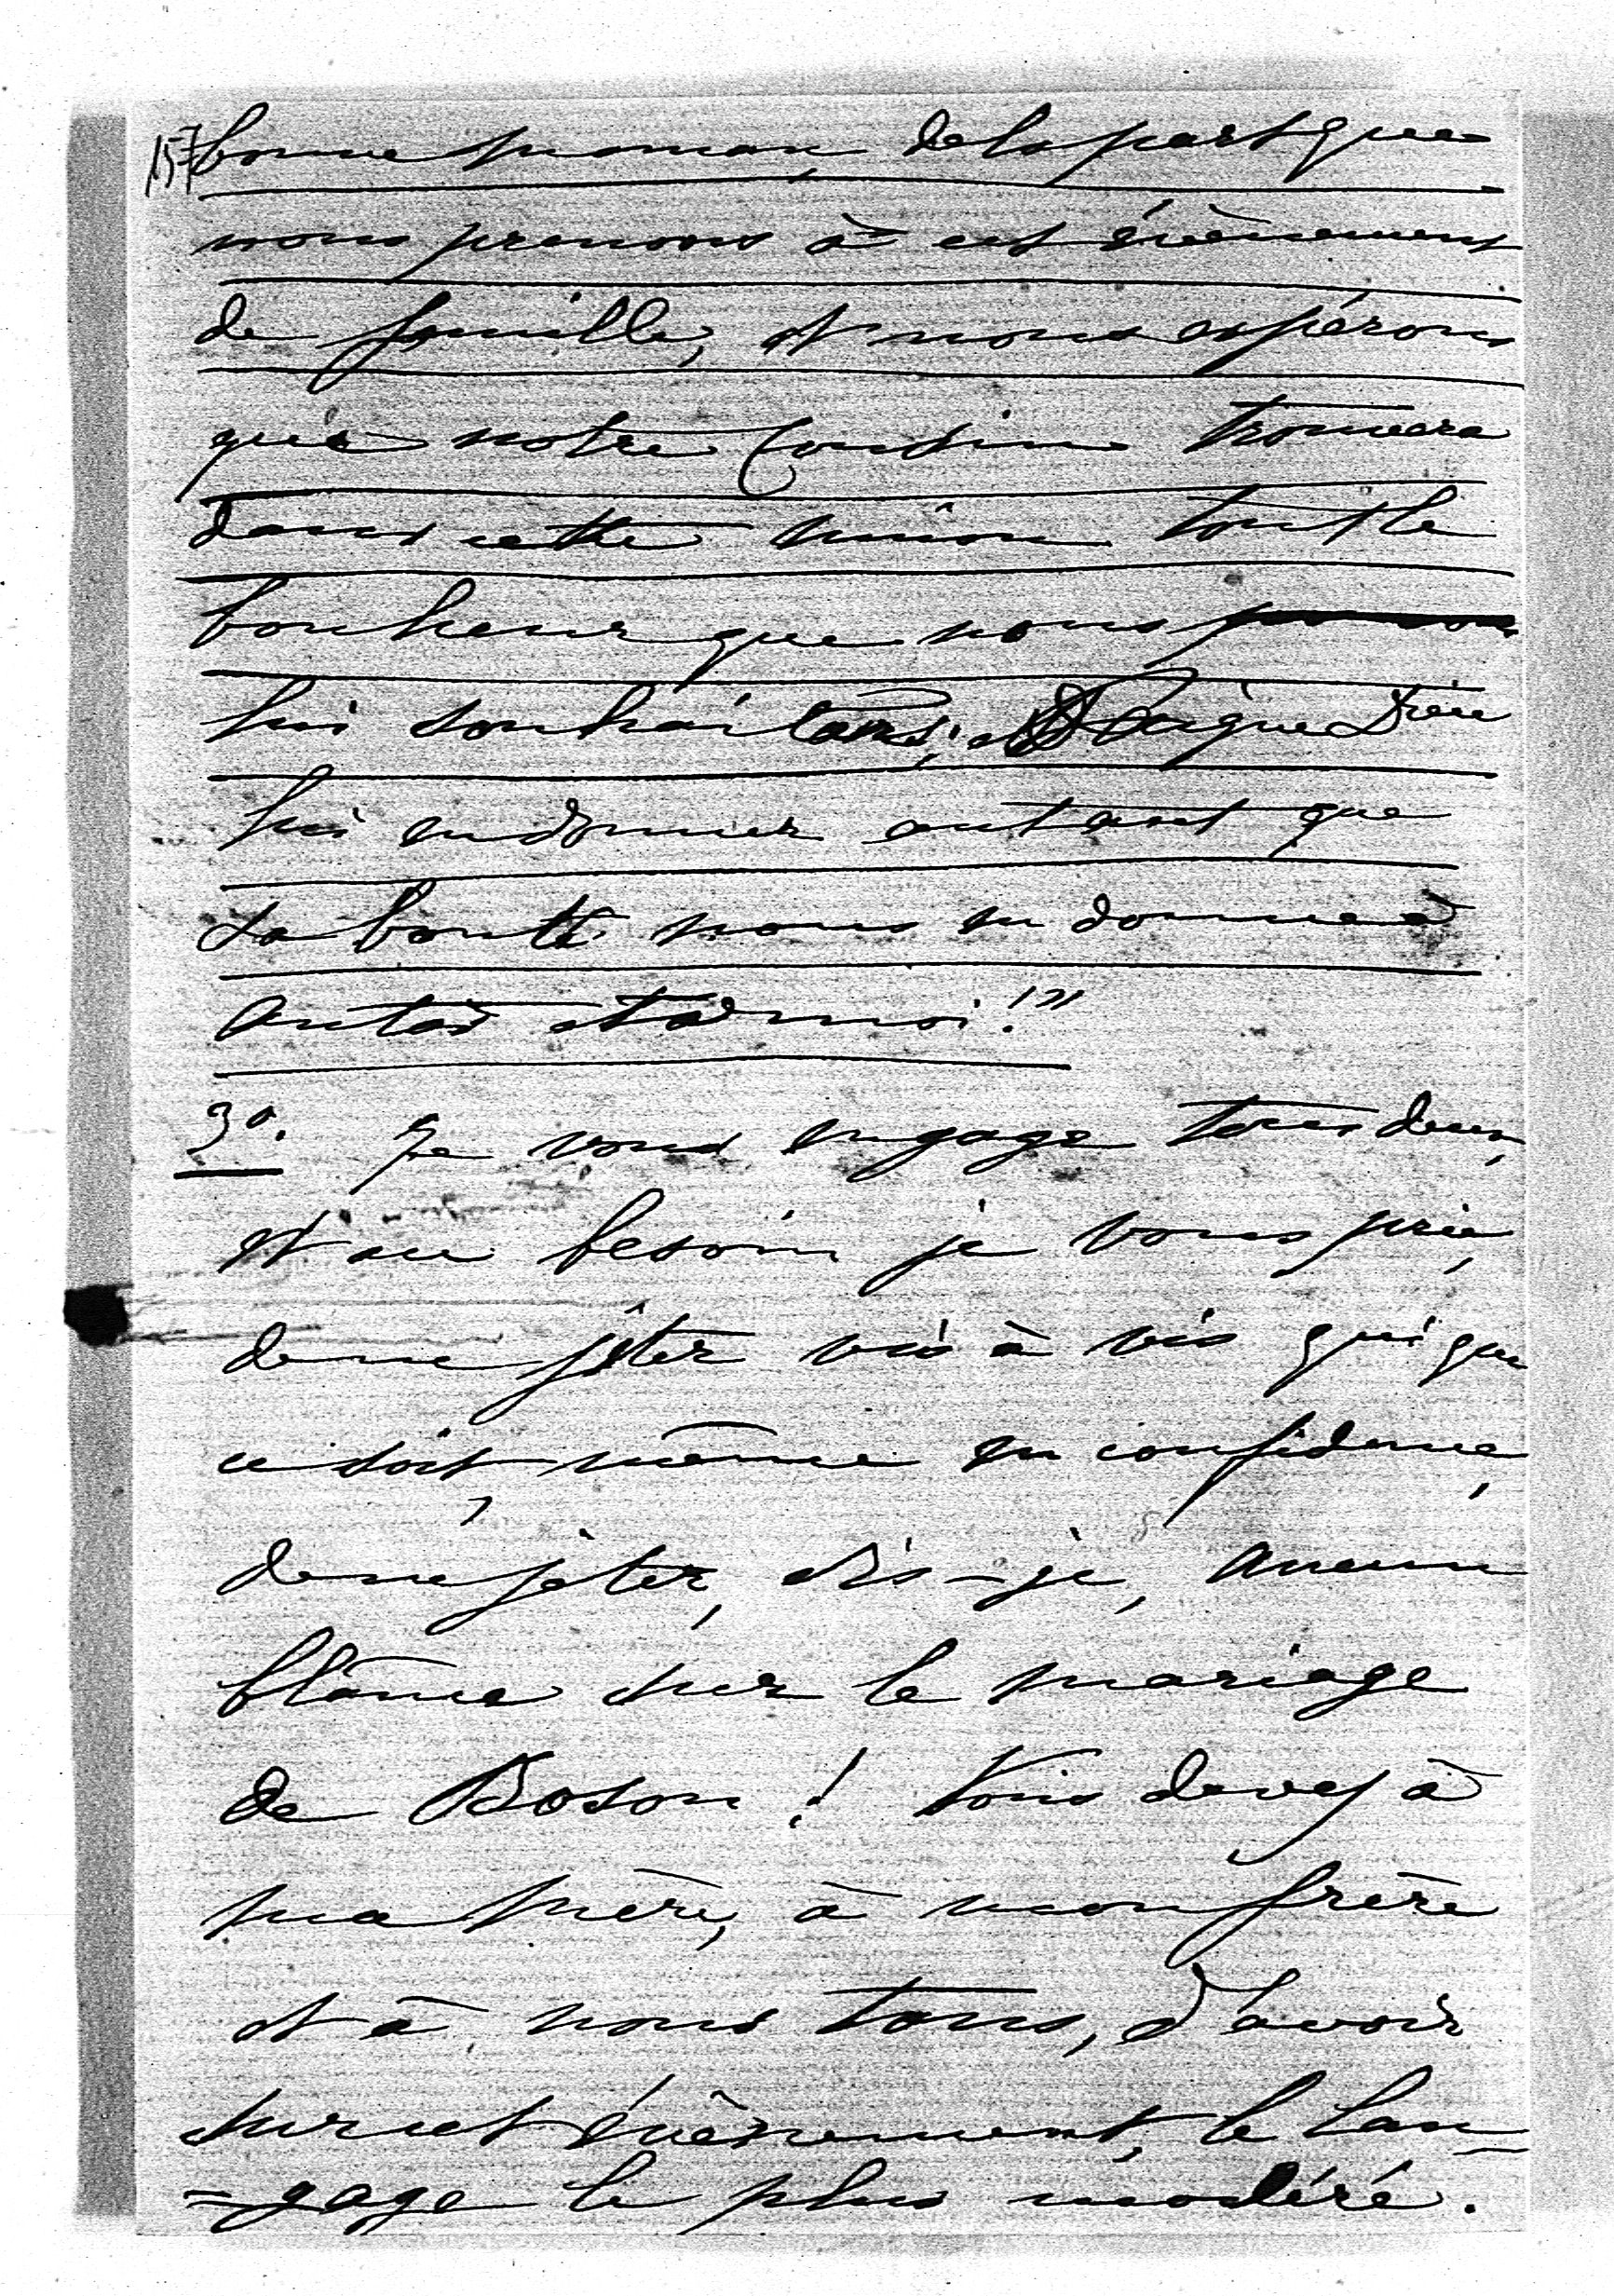 157 bonne maman de la part que
nous prenons à cet évènement
de famille, et nous espérons
que notre Cousine trouvera
dans cette union tout le
bonheur que nous
lui souhaitons; Daigne Dieu
lui en donner autant que
sa bonté nous en donne à
Antoi et à moi!"
3º. Je vous engage tous deux,
et au besoin je vous prie,
de ne jeter vis à vis qui que
ce soit, même en confidence,
de ne jeter, dis-je, aucun
blâme sur le mariage
de Boson! Vous devez à
ma mère, à mon frère
et à nous tous, d'avoir
sur cet évènement, le lan-
=gage le plus modéré.